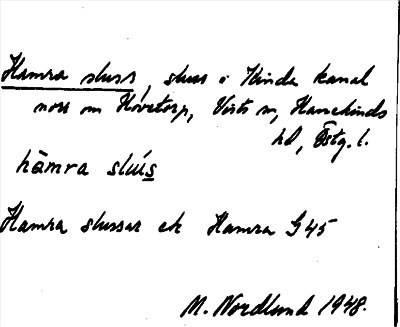 Hamra sluss, sluss i Kinda kanal
norr om Hovetorp, Vists sn, Hanekinds
hd, Östg. l.
hāmra slús
Hamra slussar ek Hamra G45
M. Nordlund 1948.